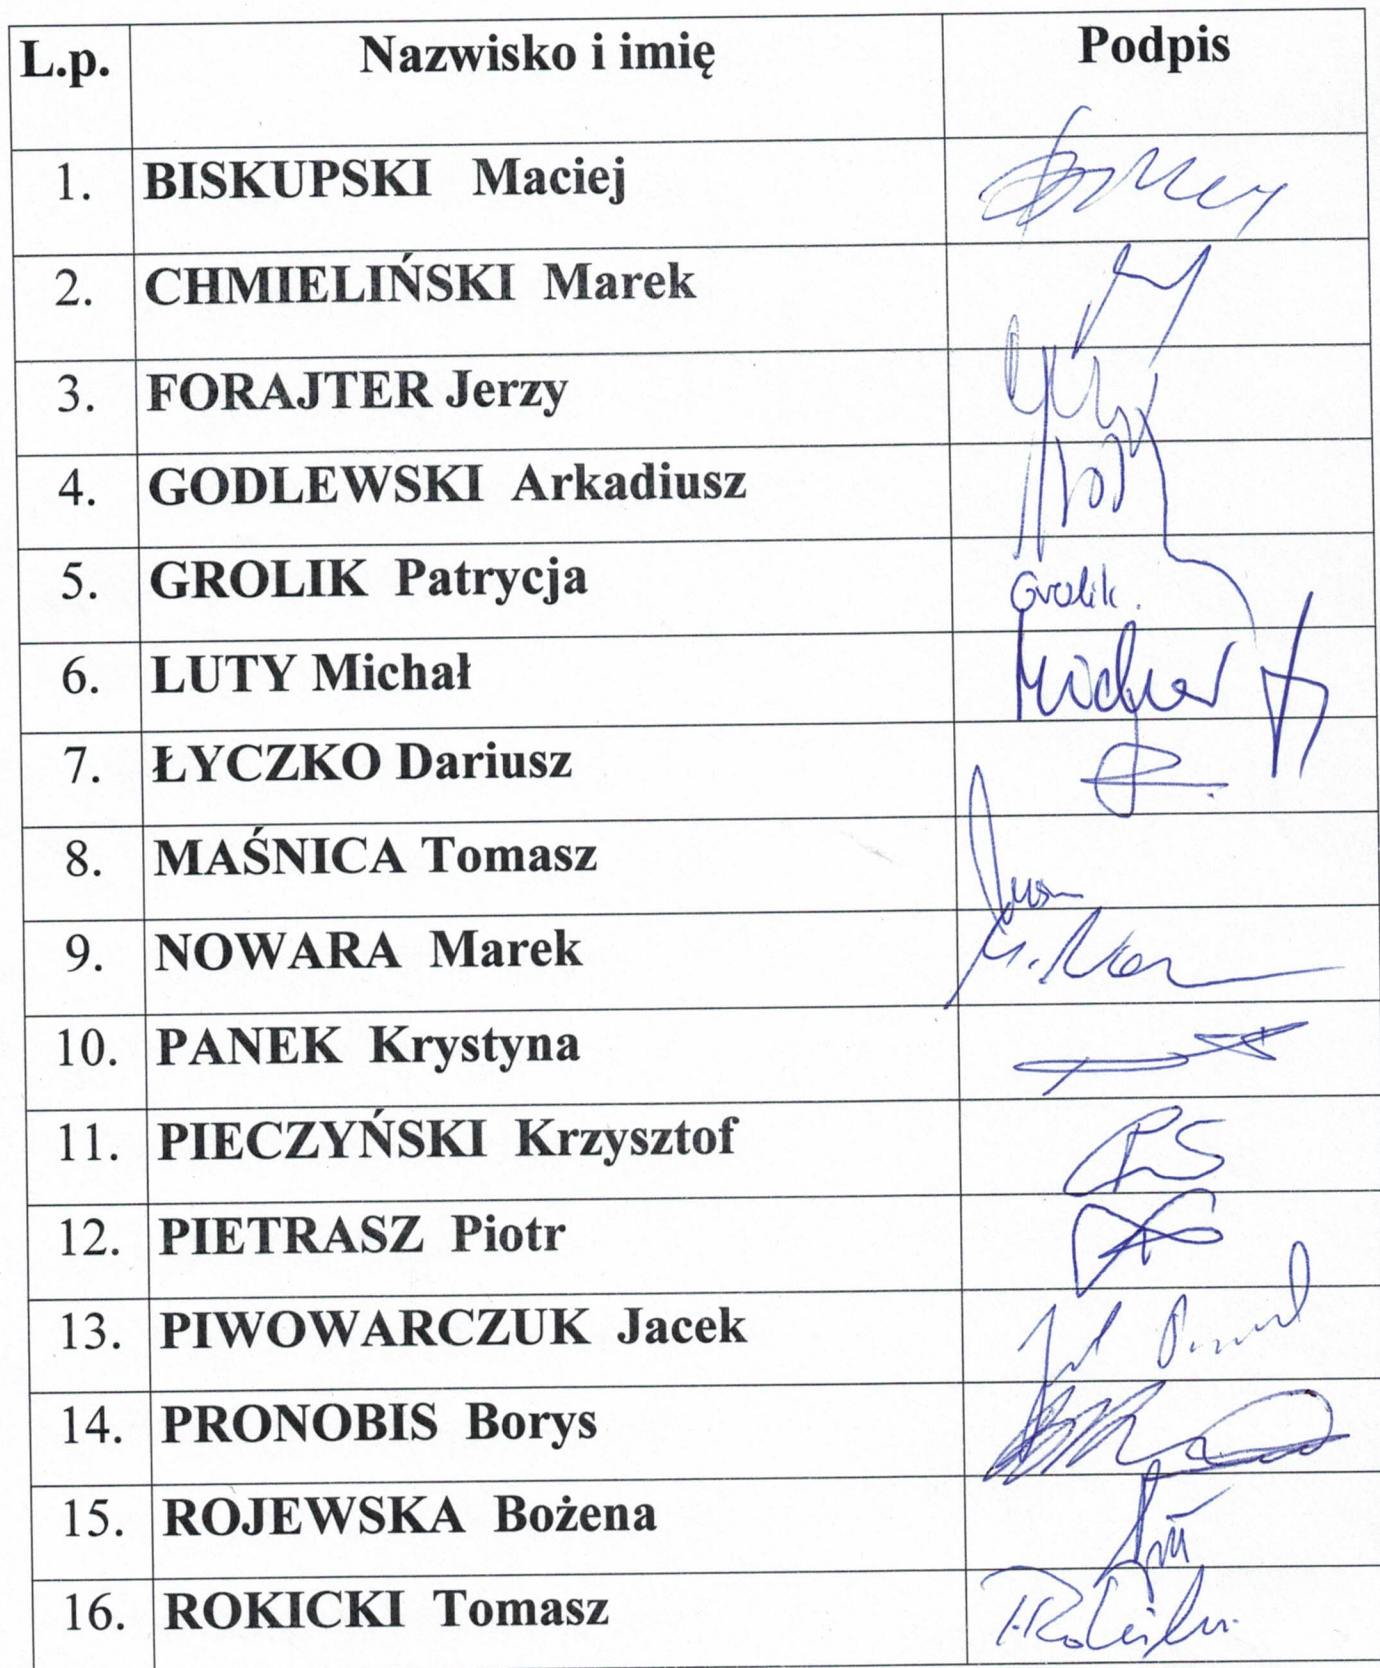 L.p. Nazwisko i imię Podpis
1. BISKUPSKI Maciej
2. CHMIELIŃSKI Marek
3. FORAJTER Jerzy
4. GODLEWSKI Arkadiusz
5. GROLIK Patrycja Grolik.
6. LUTY Michał
7. ŁYCZKO Dariusz
8. MAŚNICA Tomasz
9. NOWARA Marek
10. PANEK Krystyna
11. PIECZYŃSKI Krzysztof
12. PIETRASZ Piotr
13. PIWOWARCZUK Jacek
14. PRONOBIS Borys
15. ROJEWSKA Bożena
16. ROKICKI Tomasz